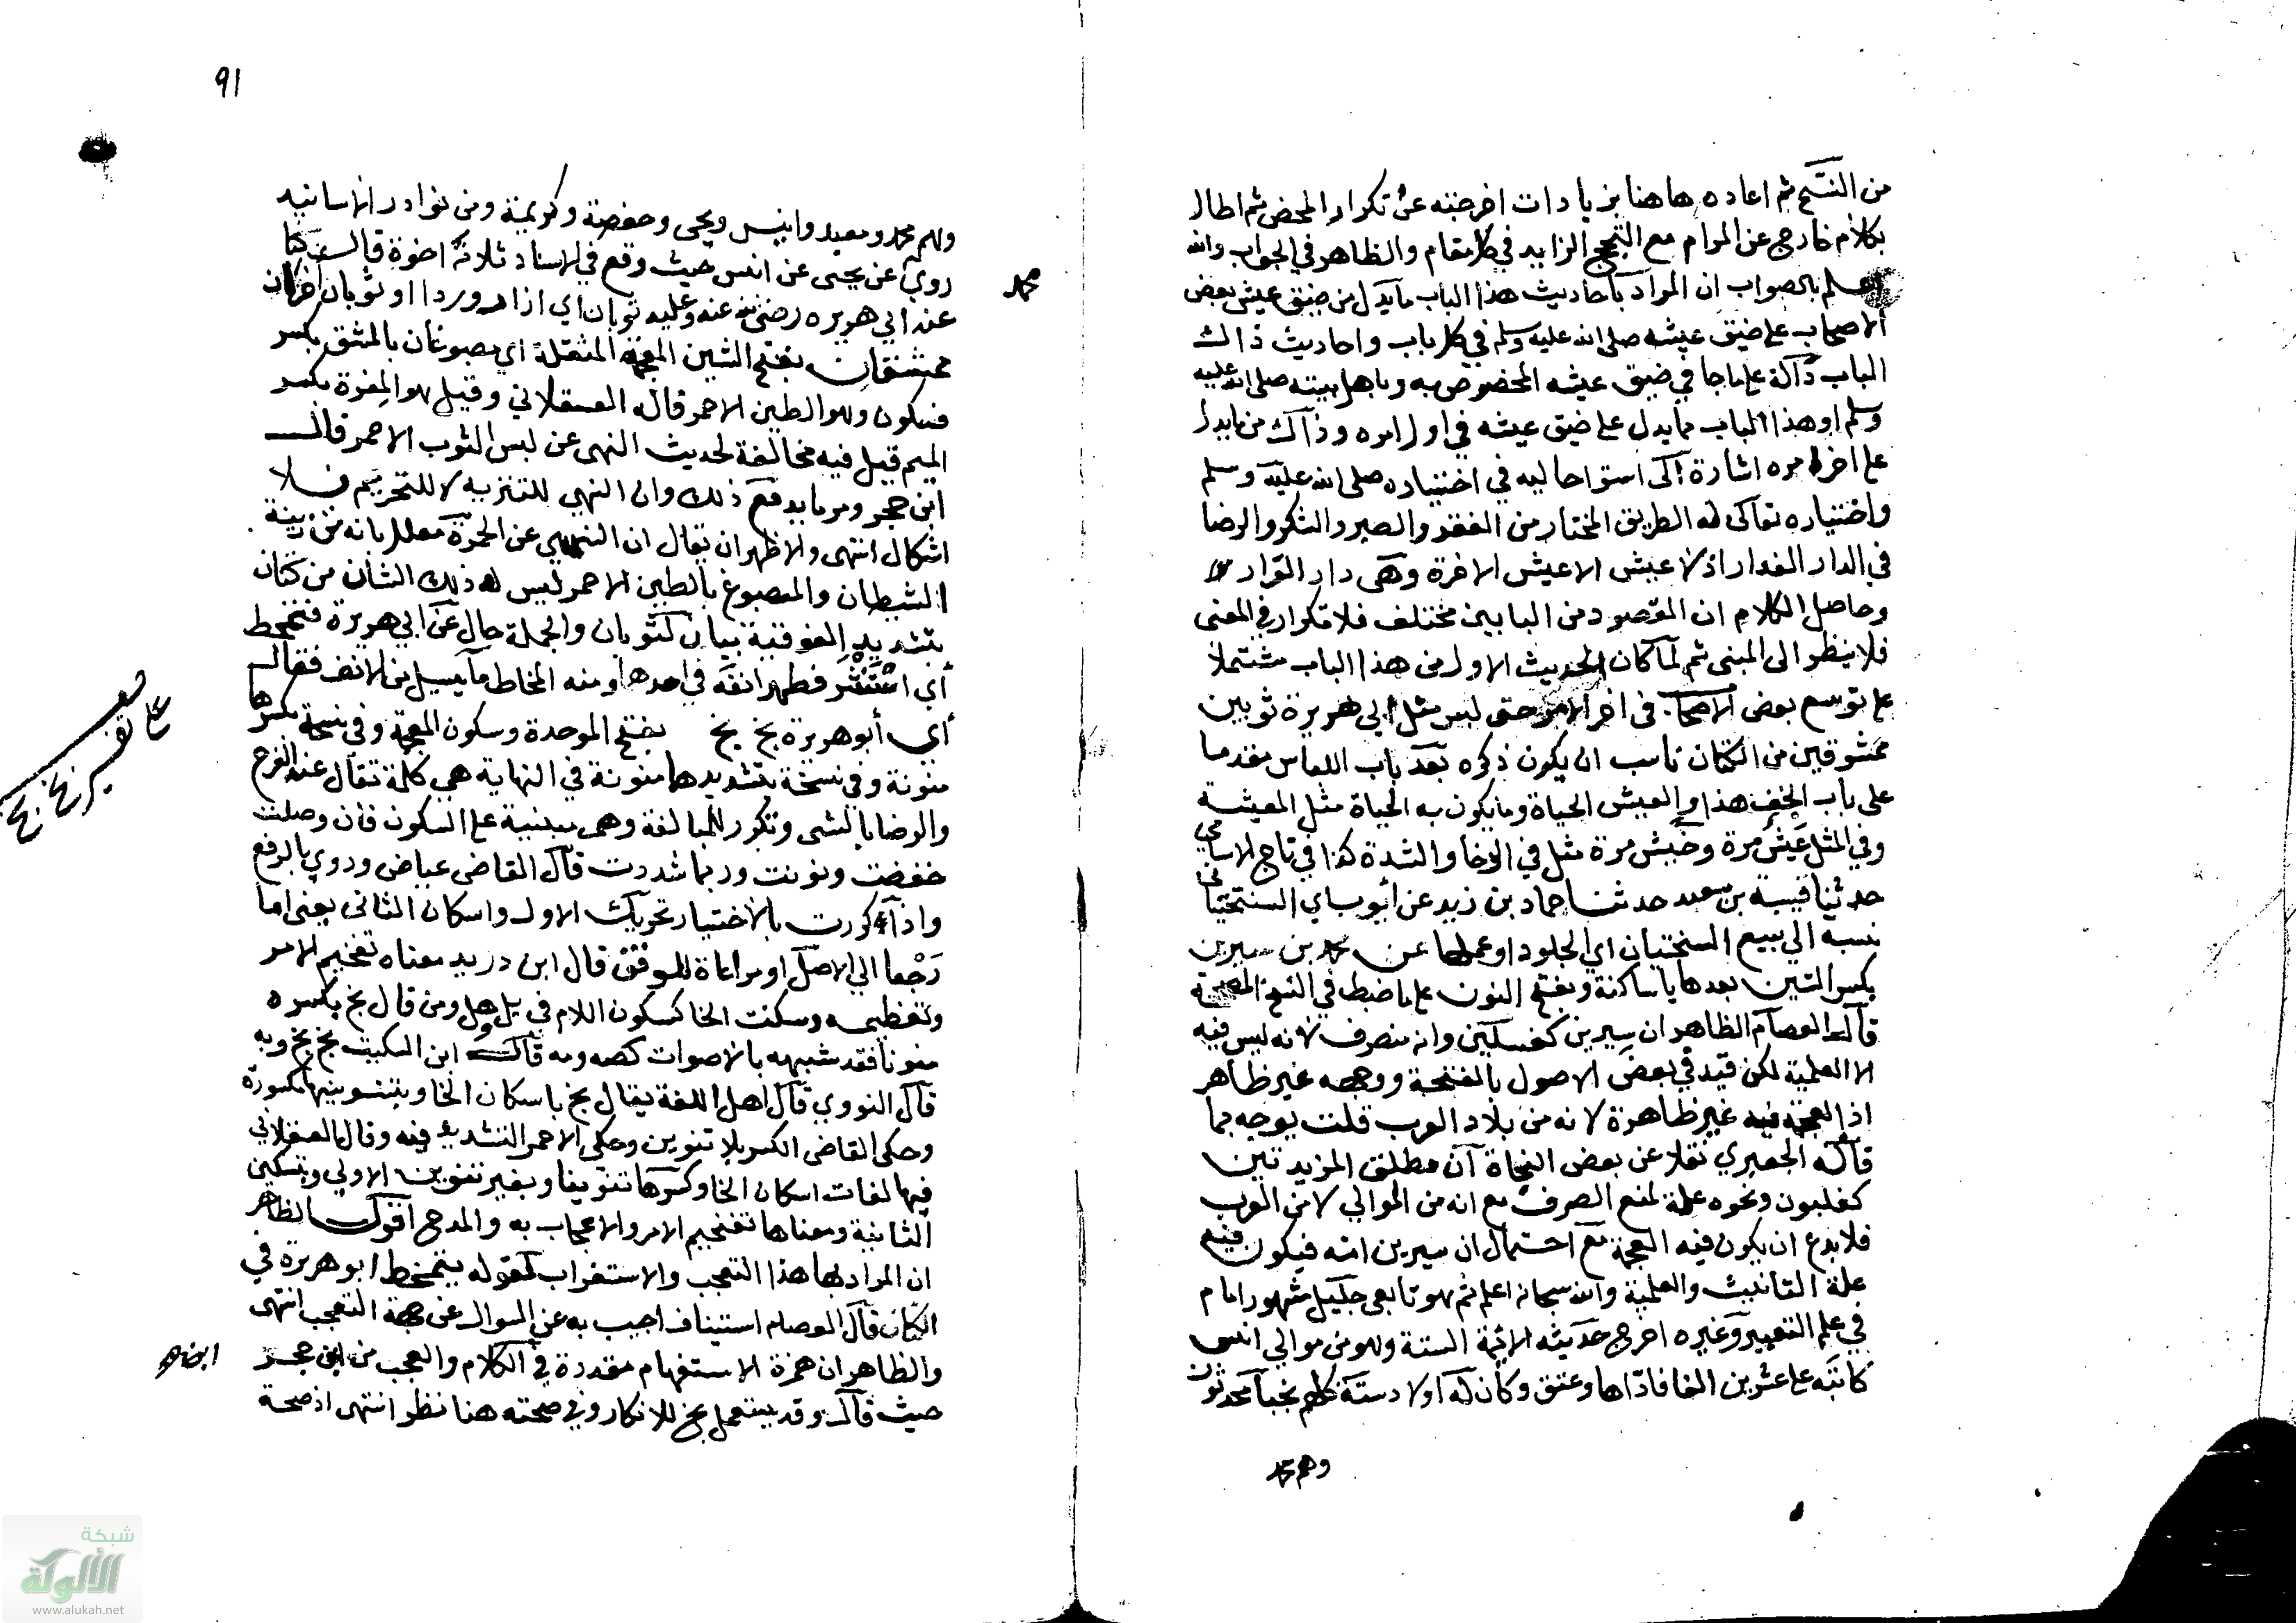 من النسخ ثم اعاده هاهنا بزيادات اخرجته عن تكرار المحض ثم اطال
بكلام خارج عن المرام مع التبجح الزايد في كل مقام والظاهر في الجواب والله
اعلم بالصواب ان المراد باحاديث هذا الباب مايدل من ضيق عيش بعض
الاصحاب على ضيق عيشه صلى الله عليه وسلم في كل باب واحاديث ذالك
الباب دالة على ماجا في ضيق عيشه المخصوص به وباهل بيته صلى الله عليه
وسلم او هذا الباب مايدل على ضيق عيشه في اول امره وذاك مايدل
على اخر امره اشارة الى استوا حاليه في اختياره صلى الله عليه وسلم
واختياره تعالى له الطريق المختار من الفقر والصبر والشكر والرضا
في الدار الغدار اذ لا عيش الا عيش الاخرة وهي دار القرار
وحاصل الكلام ان المقصود من البابين مختلف فلا تكرار في المعنى
فلا ينظر الى المبنى ثم لما كان الحديث الاول من هذا الباب مشتملا
على توسع بعض الاصحاب في اخر الامر حتى لبس مثل ابي هريرة ثوبين
ممشوقين من الكتان ناسب ان يكون ذكره بعد باب اللباس مقدما
على باب الخف هذا والعيش الحياة ومايكون به الحياة مثل المعيشة
وفي المثل عيش مرة وجيش مرة مثل في الرخا والشدة كذا في تاج الاسامي
حدثنا قتيبة بن سعيد حدثنا حماد بن زيد عن أيوب اي السختياني
نسبه الى بيع السختيان اي الجلود او عملها عن محمد بن سيرين
بكسر السين بعدها يا ساكنة وبفتح النون على ما ضبط في النسخ المصححة
قال العصام الظاهر ان سيرين كغسلين وانه منصرف لانه ليس فيه
الا العلمية لكن قيد في بعض الاصول بالفتحة ووجهه غير ظاهر
اذ العجمة فيه غير ظاهرة لانه من بلاد العرب قلت يوجه بما
قاله الجعبري نقلا عن بعض النحاة ان مطلق المزيدتين
كغلبون ونحوه علة لمنع الصرف مع انه من الموالي لا من العرب
فلا بدع ان يكون فيه العجمة مع احتمال ان سيرين امه فيكون فيه
علة التانيث والعلمية والله سبحانه اعلم ثم هو تابعي جليل مشهور امام
في علم التعبير وغيره اخرج حديثه الائمة الستة وهو من موالي انس
كاتبه على عشرين الفا فادّاها وعتق وكان له اولاد ستة كلهم نجبا محدثون
وهم محمد
91
وهم محمد ومعبد وانيس ويحيى وحفصة وكريمة ومن نوادر الاسانيد
روي عن يحيى عن انس حيث وقع في الاسناد ثلاثة اخوة قال كنا
محمد
عند ابي هريره رضي الله عنه وعليه ثوبان اي ازار وردا او ثوبان اخران
ممشقان بفتح الشين المعجمة المثقلة اي مصبوغان بالمشق بكسر
فسكون وهو الطين الاحمر قاله العسقلاني وقيل هو المغرة بكسر
الميم قيل فيه مخالفة لحديث النهي عن لبس الثوب الاحمر قال
ابن حجر ومر مايدفع ذلك وان النهي للتنزيه لا للتحريم فلا
اشكال انتهى والاظهر ان يقال ان النهي عن الحمرة معلل بانه من زينة
الشيطان والمصبوغ بالطين الاحمر ليس له ذلك الشان من كتان
بتشديد الفوقية بيان لثوبان والجملة حال عن ابي هريرة فتمخط
أي استنثر فطهر انفه في احدهما ومنه المخاط مايسيل من الانف فقال
أي أبو هريرة بخ بخ بفتح الموحدة وسكون المعجمة وفي نسخة بكسرها
منونة وفي نسخة بتشديدها منونة في النهاية هي كلمة تقال عند الفرح
على تفسير بخ بخ
والرضا بالشي وتكرر للمبالغة وهي مبنية على السكون فان وصلت
خفضت ونونت وربما شددت قال القاضي عياض وروي بالرفع
واذا كررت بالاختيار تحريك الاول واسكان الثاني يعني اما
رَجْعا الى الاصل او مراعاة للوقف قال ابن دريد معناه تفخيم الامر
وتعظيمه وسكنت الخا كسكون اللام في بل وهل ومن قال بخ بكسره
منونا فقد شبهه بالاصوات كصه ومه قال ابن السكيت بخ بخ وبه
قال النووي قال اهل اللغة يقال بخ باسكان الخا وبتنوينها مكسورة
وحكى القاضي الكسر بلا تنوين وحكى الاحمر التشديد فيه وقال العسقلاني
فيها لغات اسكان الخا وكسرها تنوينا وبغير تنوين الاولى وتسكين
الثانية ومعناها تفخيم الامر والاعجاب به والمدح اقول الظاهر
ان المراد بها هذا التعجب والاستغراب كقوله يتمخط ابو هريرة في
الكتان قال العصام استيناف اجيب به عن السوال عن جهة التعجب انتهى
والظاهر ان همزة الاستفهام مقدرة في الكلام والعجب من ابن حجر
حيث قال وقد يستعمل بخ للانكار وفي صحته هنا نظر انتهى اذ صحة
شبكة
الألوكة
www.alukah.net